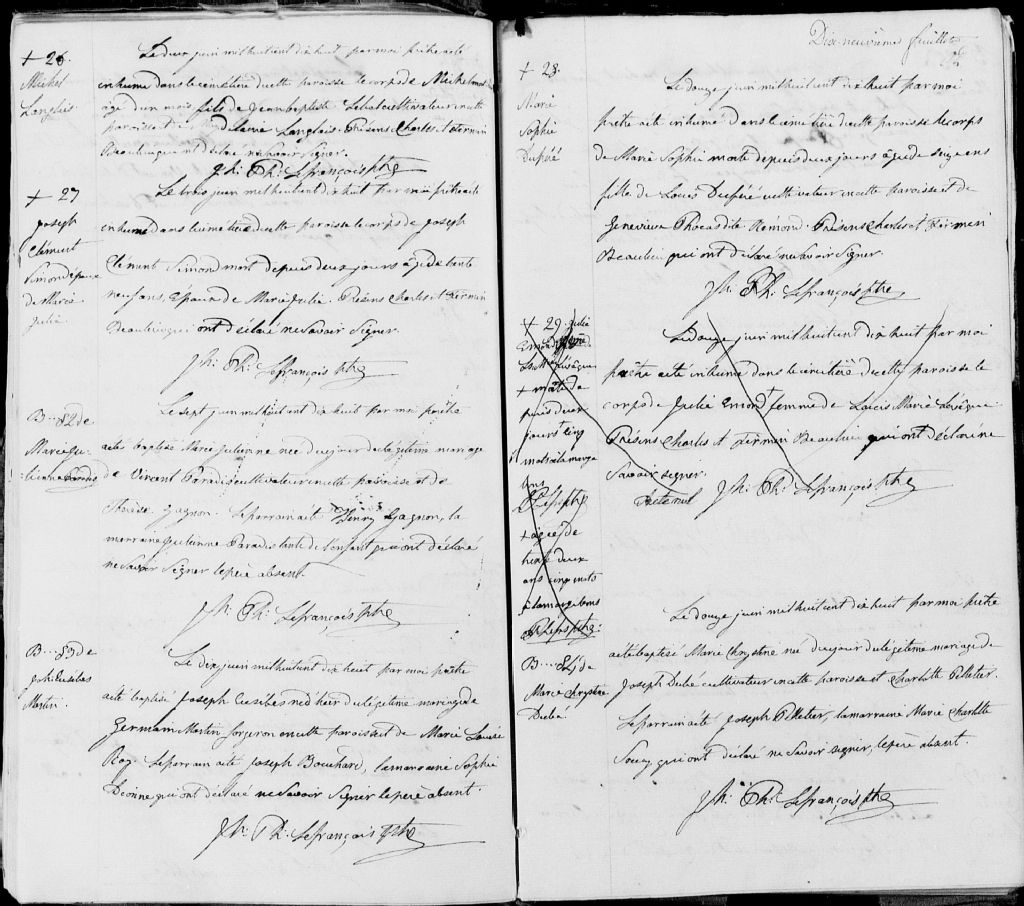 + 26.
Michel
Langlais
Le deux juin mil huit cent dix huit par moi prêtre a été
inhumé dans le cimetière de cette paroisse le corps de Michel mort
âgé d'un mois, fils de Jean baptiste cultivateur en cette
paroisse et de Marie Langlais. Présens Charles et Fermin
Beaulieu qui ont déclaré ne savoir signer.
Jh: Ph: Lefrançois ptre
+ 27
Joseph
Clément
Simond époux
de Marie
Julie
Le trois juin mil huit cent dix huit par moi prêtre a été
inhumé dans le cimetière de cette paroisse le corps de Joseph
Clément Simond mort depuis deux jours âgé de trente
neuf ans, Epoux de Marie Julie. Présens Charles et Fermin
Beaulieu qui ont déclaré ne savoir signer.
Jh: Ph: Lefrançois ptre
B... 82 de
Marie Ju-
lienne Paradis
Le sept juin mil huit cent dix huit par moi prêtre
a été baptisé Marie Julienne née du jour du légitime mariage
de Vincent Paradis cultivateur en cette paroisse et de
Thérèse Gagnon. Le parrain a été Henry Gagnon, la
marraine Julienne Paradis tante de l'enfant qui ont déclaré
ne savoir signer le père absent.
Jh: Ph: Lefrançois ptre
B... 83 de
Jph Eusebes
Martin.
Le dix juin mil huit cent dix huit par moi prêtre
a été baptisé Joseph Eusèbes né d'hier du légitime mariage de
Germain Martin forgeron en cette paroisse et de Marie Louise
Roy. Le parrain a été Joseph Bouchard, la marraine Sophie
Dionne qui ont déclaré ne savoir signer le père absent.
Jh: Ph: Lefrançois ptre
Dix-neuvième feuillet
+ 28.
Marie
Sophie
Dupéré
Le douze juin mil huit cent dix huit par moi
prêtre a été inhumé dans le cimetière de cette paroisse le corps
de Marie Sophie morte depuis deux jours âgée de seize ans
fille de Louis Dupéré cultivateur en cette paroisse et de
Geneviève Phocas dite Rémond. Présens Charles et Fermin
Beaulieu qui ont déclaré ne savoir signer.
Jh: Ph: Lefrançois ptre
+ 29. Julie
Emond
+ morte de
puis deux
jours cinq
mots à la marge
bons
+ agée de
trente deux
ans cinq mots
à la marge bons
Le douze juin mil huit cent dix huit par moi
prêtre a été inhumé dans le cimetière de cette paroisse le
corps de Julie Emond + femme de Louis Marie Levêque.
Présens Charles et Fermin Beaulieu qui ont déclaré ne
savoir signer.
Acte nul Jh: Ph: Lefrançois ptre
B... 84 de
Marie Chrystine
Dubé
Le douze juin mil huit cent dix huit par moi prêtre
a été baptisé Marie Chrystine née du jour du légitime mariage de
Joseph Dubé cultivateur en cette paroisse et Charlotte Pelletier.
Le parrain a été Joseph Pelletier, la marraine Marie Charlotte
Soucy qui ont déclaré ne savoir signer, le père absent.
Jh: Ph: Lefrançois ptre